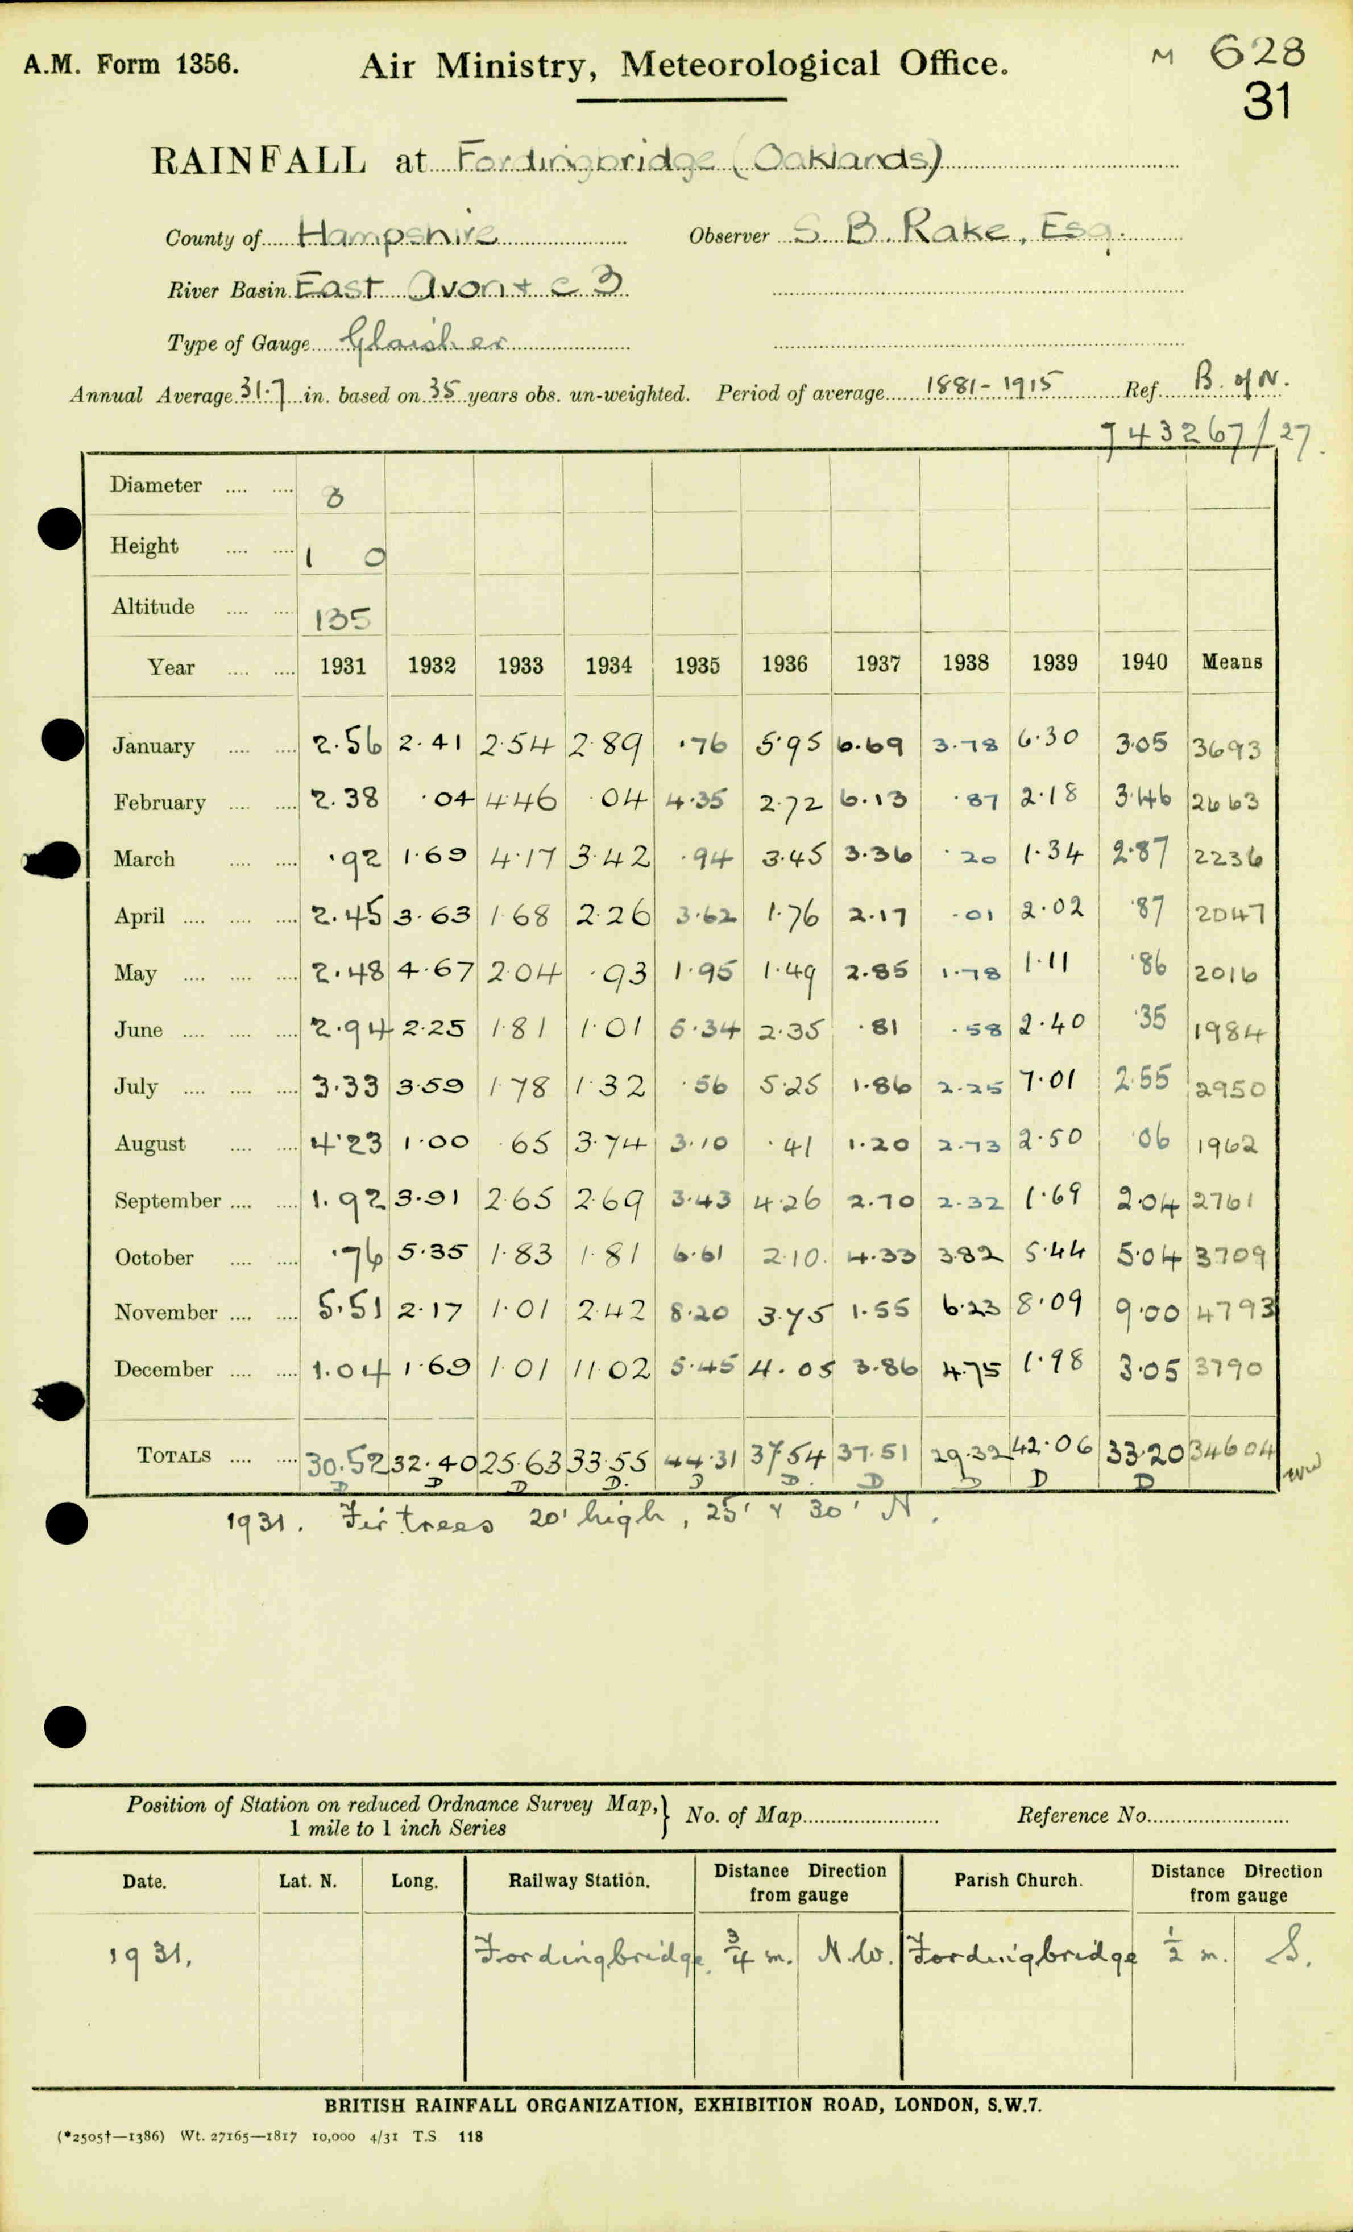 A.M. Form 1356. Air Ministry, Meteorological Office. M 628
31
RAINFALL at Fordingbridge (Oaklands)
County of Hampshire Observer S. B. Rake, Esq.
River Basin East Avon + c 3
Type of Gauge Glaisher
Annual Average 31.7 in. based on 35 years obs. un-weighted. Period of average 1881-1915 Ref. B. of N.
J 43267/27.
Diameter .... .... 8
Height .... .... 1 0
Altitude .... .... 135
Year .... .... 1931 1932 1933 1934 1935 1936 1937 1938 1939 1940 Means
January .... .... 2.56 2.41 2.54 2.89 .76 5.95 6.69 3.78 6.30 3.05 3693
February .... .... 2.38 .04 4.46 .04 4.35 2.72 6.13 .87 2.18 3.46 2663
March .... .... .92 1.69 4.17 3.42 .94 3.45 3.36 .20 1.34 2.87 2236
April .... .... .... 2.45 3.63 1.68 2.26 3.62 1.76 2.17 .01 2.02 .87 2047
May .... .... .... 2.48 4.67 2.04 .93 1.95 1.49 2.85 1.78 1.11 .86 2016
June .... .... .... 2.94 2.25 1.81 1.01 5.34 2.35 .81 .58 2.40 .35 1984
July .... .... .... 3.33 3.59 1.78 1.32 .56 5.25 1.86 2.25 7.01 2.55 2950
August .... .... 4.23 1.00 .65 3.74 3.10 .41 1.20 2.73 2.50 .06 1962
September .... .... 1.92 3.91 2.65 2.69 3.43 4.26 2.70 2.32 1.69 2.04 2761
October .... .... .76 5.35 1.83 1.81 6.61 2.10. 4.33 3.82 5.44 5.04 3709
November .... .... 5.51 2.17 1.01 2.42 8.20 3.75 1.55 6.23 8.09 9.00 4793
December .... .... 1.04 1.69 1.01 11.02 5.45 4.05 3.86 4.75 1.98 3.05 3790
TOTALS .... .... 30.52 32.40 25.63 33.55 44.31 37.54 37.51 29.32 42.06 33.20 34604
D D D D. D D. D D D D
1931. Fir trees 20' high, 25' & 30' N.
Position of Station on reduced Ordnance Survey Map,} No. of Map Reference No.
1 mile to 1 inch Series
Date. Lat. N. Long. Railway Station. Distance Direction from gauge Parish Church. Distance Direction from gauge
1931. Fordingbridge. 3/4 m. N.W. Fordingbridge 1/2 m. S.
BRITISH RAINFALL ORGANIZATION, EXHIBITION ROAD, LONDON, S.W.7.
(*2505†—1386) Wt. 27165—1817 10,000 4/31 T.S 118